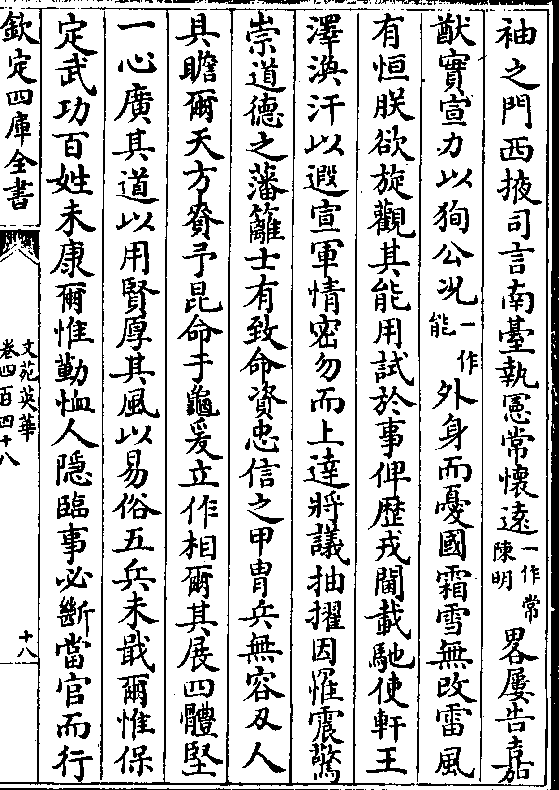 袖之門西掖司言南臺執憲常懷遠一作常陳明畧屢告嘉
猷實宣力以狥公况一作能外身而憂國霜雪無改雷風
有恒朕欲旋觀其能用試於事俾歴戎閫載馳使軒王
澤渙汗以遐宣軍情密勿而上達將議抽擢因罹震驚
崇道德之藩籬士有致命資忠信之甲胄兵無容刃人
具瞻爾天方賚予昆命于龜爰立作相爾其展四體堅
一心廣其道以用賢厚其風以易俗五兵未戢爾惟保
定武功百姓未康爾惟勤恤人隠臨事必斷當官而行
欽定四庫全書
文苑英華
卷四百四十八
十八